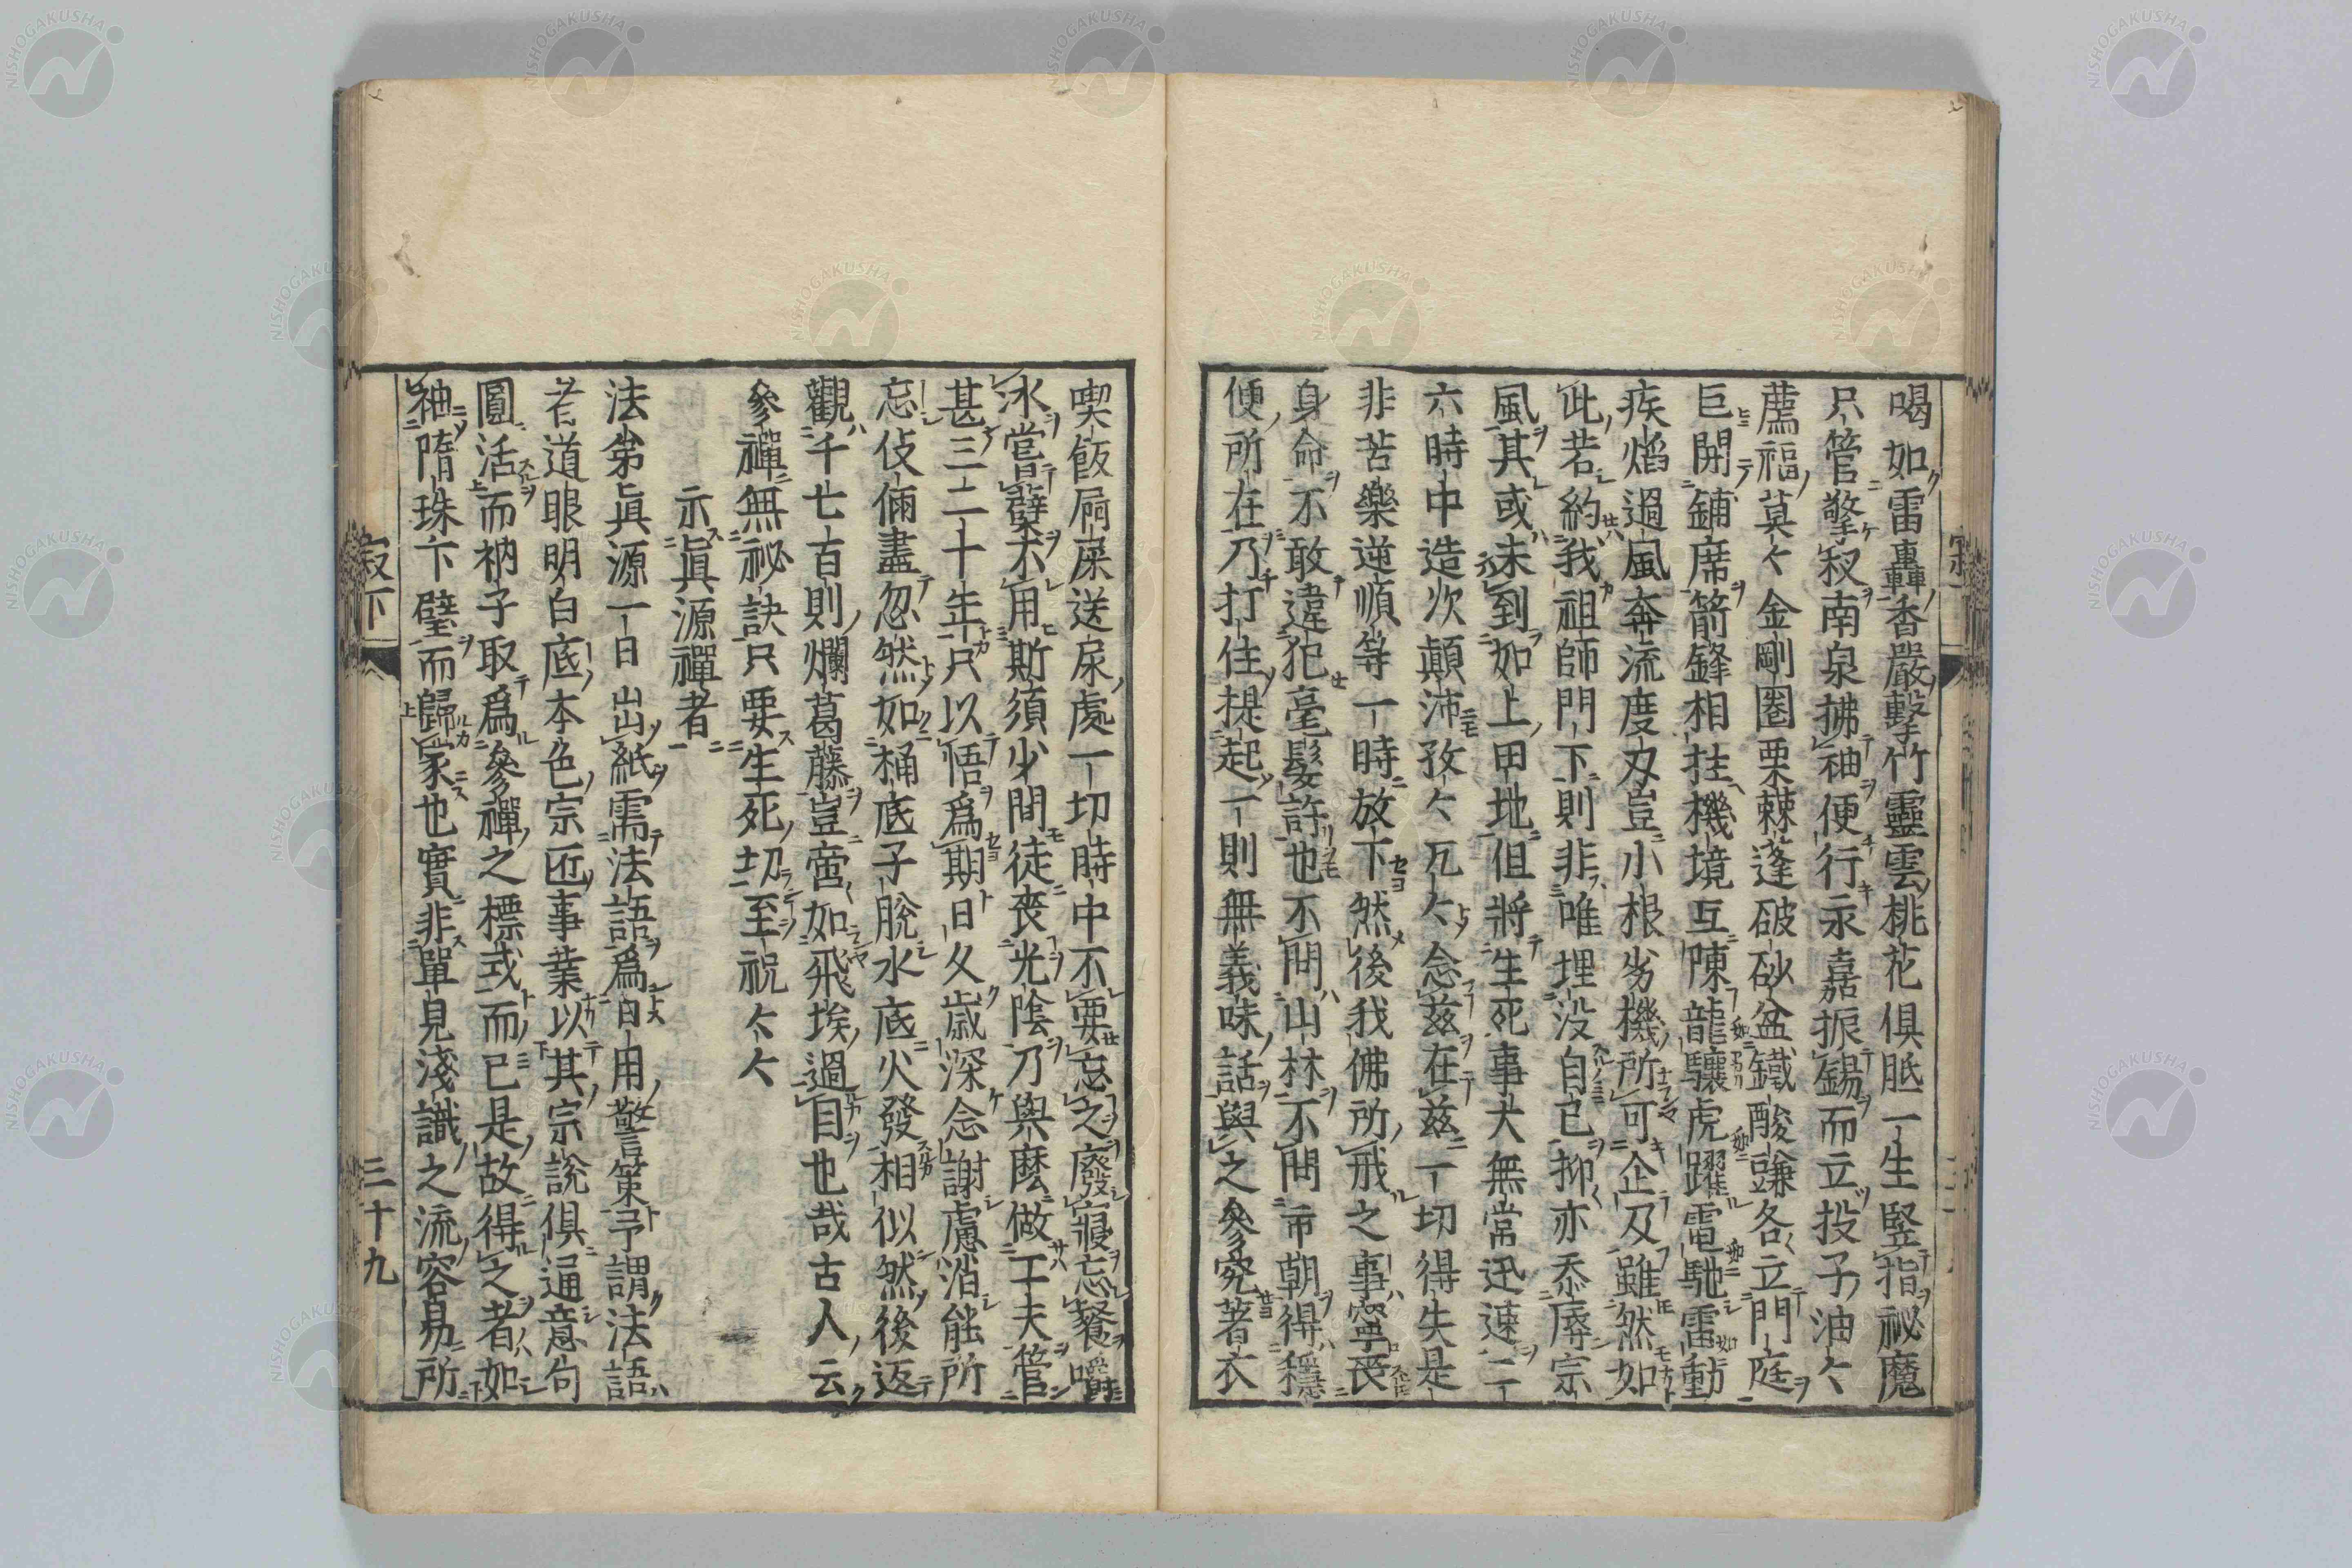 喝如雷轟香嚴擊竹靈雲桃花俱胝一生竪指祕魔
只管擎杈南泉拂袖便行永嘉振錫而立投子油々
薦福莫々金剛圈栗棘蓬破砂盆鐵酸豏各立門庭
巨開鋪席箭鋒相拄機境互陳龍驤虎躍電馳雷動
疾焰過風奔流度刃豈小根劣機所可企及雖然如
此若約我祖師門下則非唯埋没自己抑亦忝辱宗
風其或未到如上田地但將生死事大無常迅速二
六時中造次顛沛孜々兀々念茲在茲一切得失是
非苦樂逆順等一時放下然後我佛所戒之事寧喪
身命不敢違犯毫髮許也不問山林不問市朝得穩
便所在乃打住提起一則無義味話與之參究著衣
喫飯屙屎送尿處一切時中不要忘之廢寢忘餐嚼
冰嘗蘗不用斯須少間徒喪光陰乃與麼做工夫管
甚三二十年只以悟爲期日久歲深念謝慮消能所
忘伎倆盡忽然如桶底子脫水底火發相似然後返
觀千七百則爛葛藤豈啻如飛埃過目也哉古人云
參禪無祕訣只要生死切至祝々々
示眞源禪者
法弟眞源一日出紙需法語爲日用警策予謂法語
者道眼明白底本色宗匠事業以其宗說俱通意句
圓活而衲子取爲參禪之標或而已是故得之者如
袖隋珠卞璧而歸家也實非單見淺識之流容易所
寂下
三十九
NISHOGAKUSHA